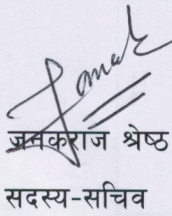 जनकराज श्रेष्ठ
सदस्य-सचिव